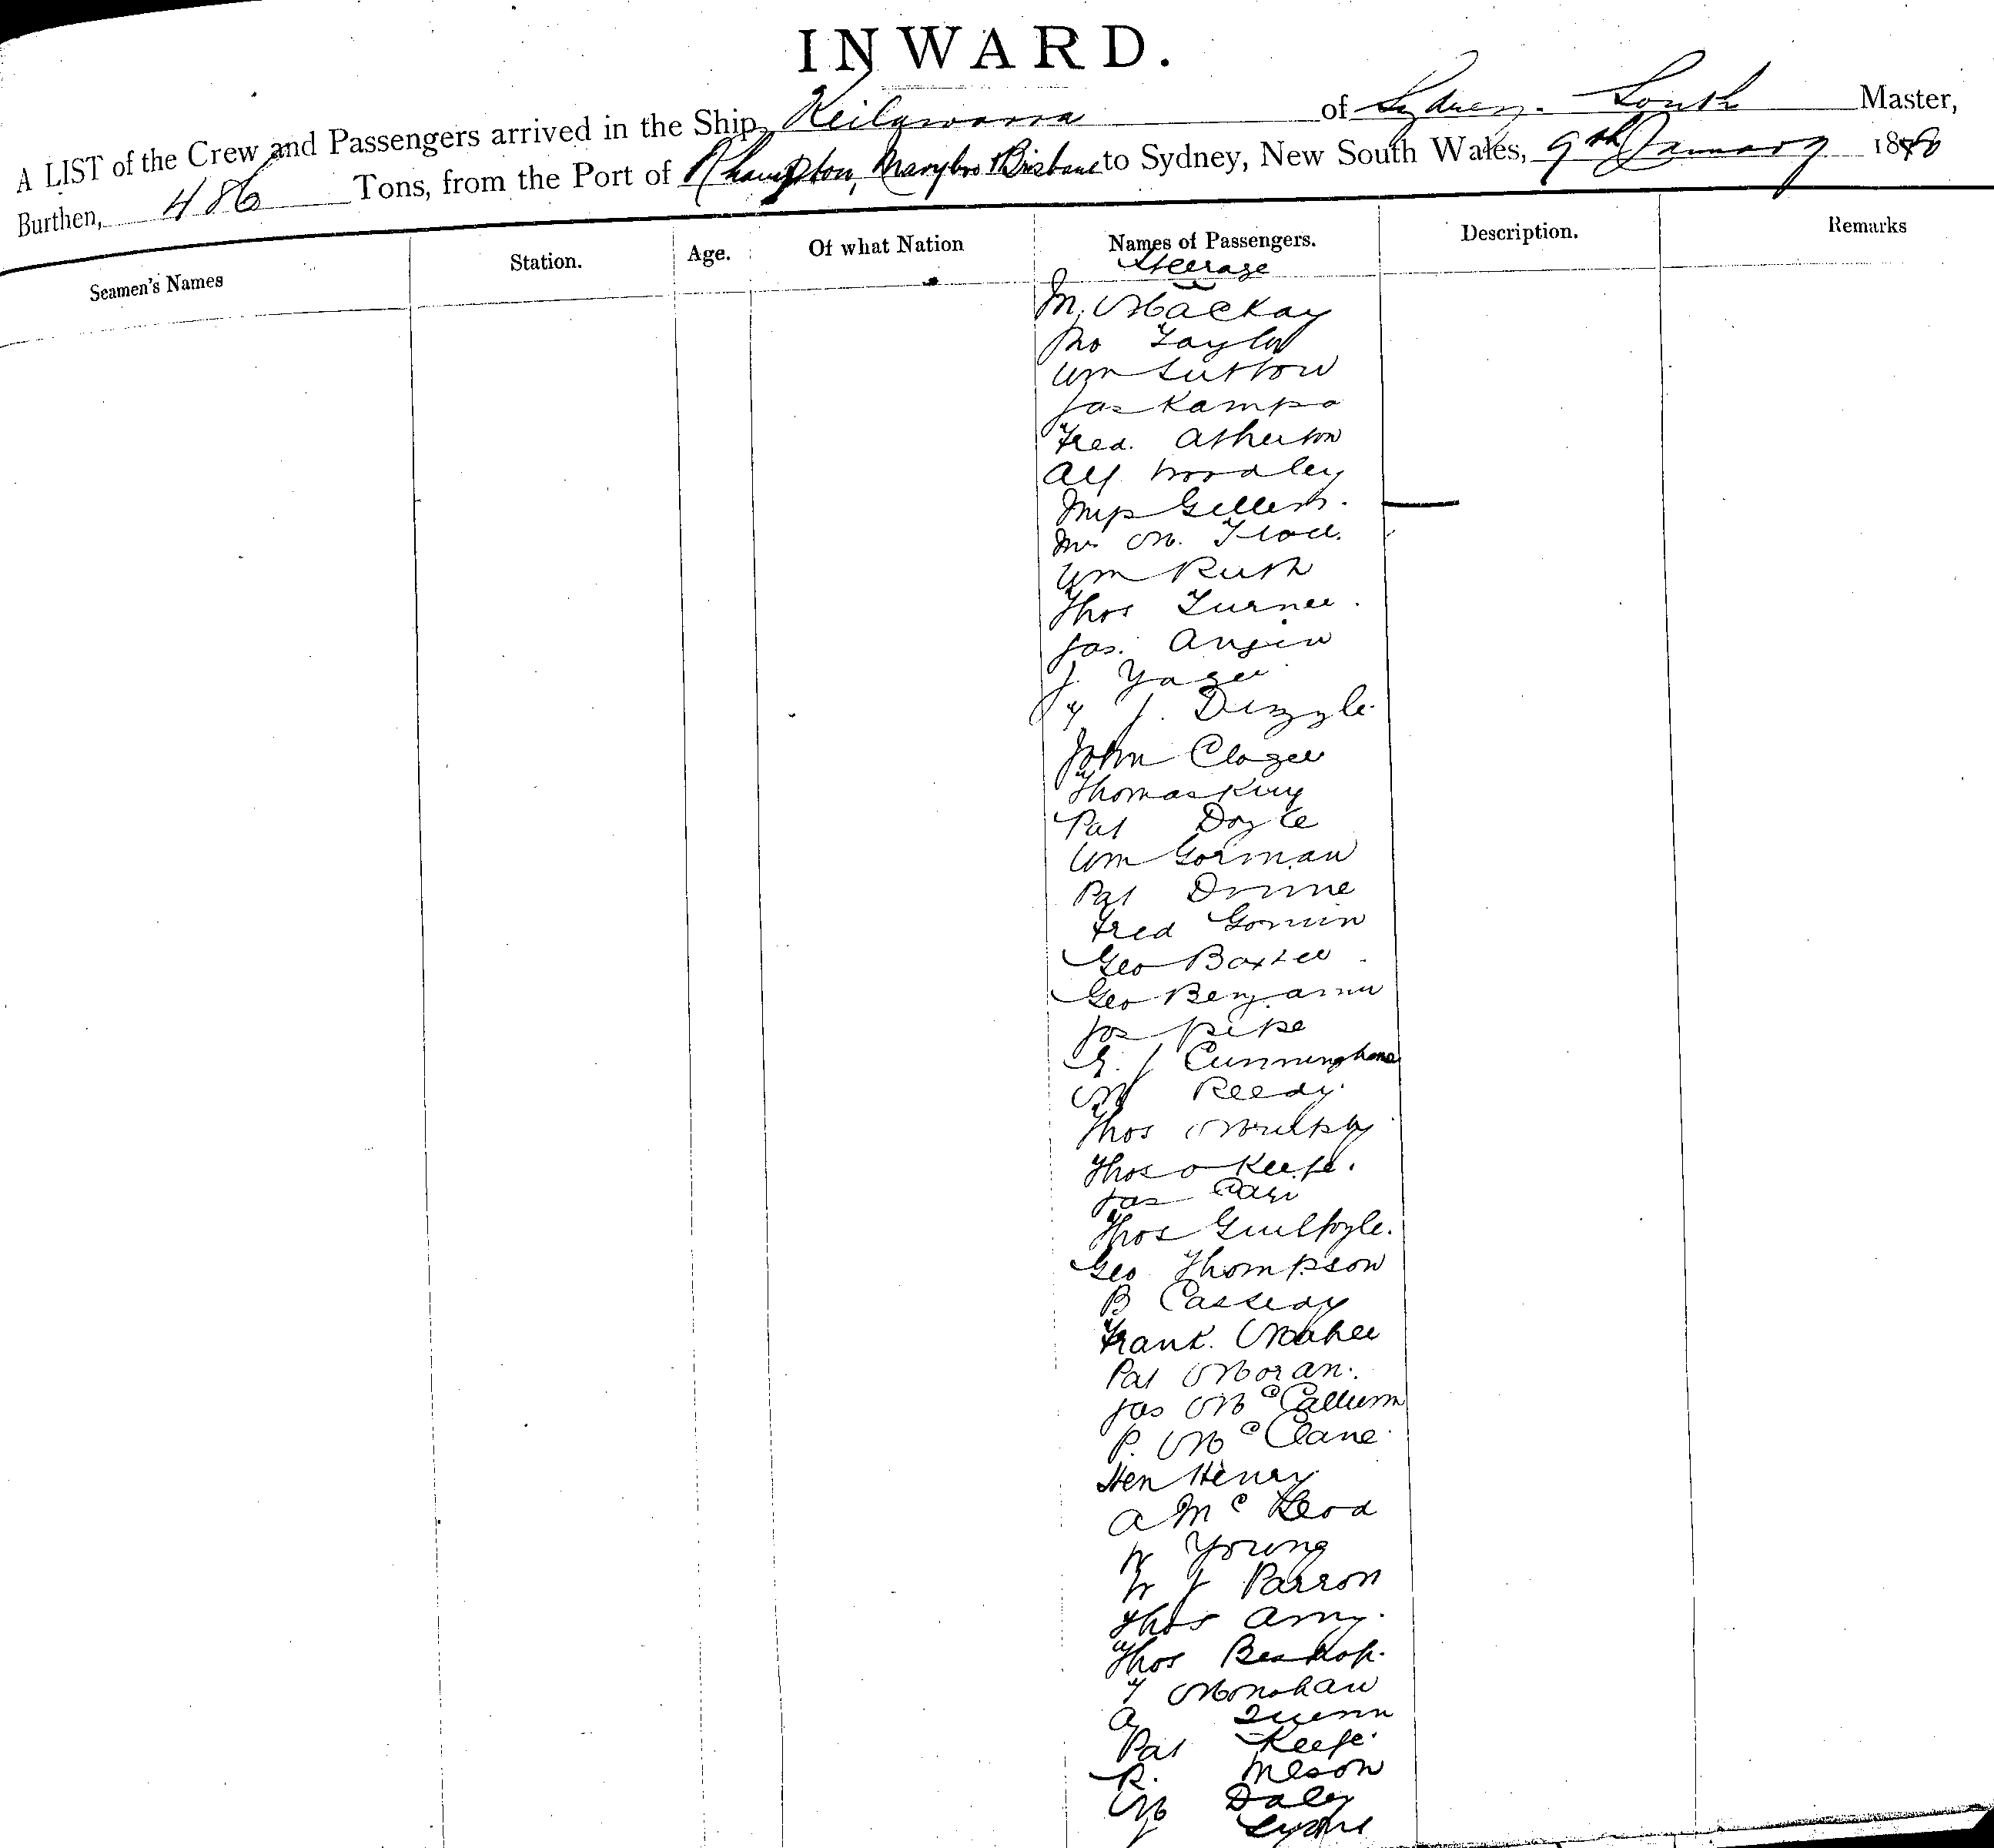 INWARD.
A LIST of the Crew and Passengers arrived in the Ship Keilawarra of Sydney. South Master,
Burthen, 486 Tons, from the Port of Rhampton, Marybro & Brisbane to Sydney, New South Wales, 9th January 1880
Seamen's Names Station. Age. Of what Nation Names of Passengers. Description. Remarks
Steerage
M. Mackay
Jno Taylor
Wm Sutton
Jas Kampo
Fred. Atherton
Alf. Woodley
Miss
Mrs M.
Wm Rush
Thos Turner.
Jas.
J. Yager
J. Dizzle
John Clager
Thomas King
Pat Doyle
Wm Gorman
Pat
Fred
Geo Baxter
Geo Benjamin
Jos Pike
J Cunningham
M Reedy.
Thos Murphy
Thos O Keefe.
Jas
Thos Guilfoyle.
Geo Thompson
B Cassidy
Frank. Maher
Pat Moran.
Jas McCallum
P. McClane
Hen Henry
A McLeod
W Young
W J Parron
Thos Amy.
Thos Bishop.
T Monahan
A Quinn
Pat Keefe.
R.
M Daly